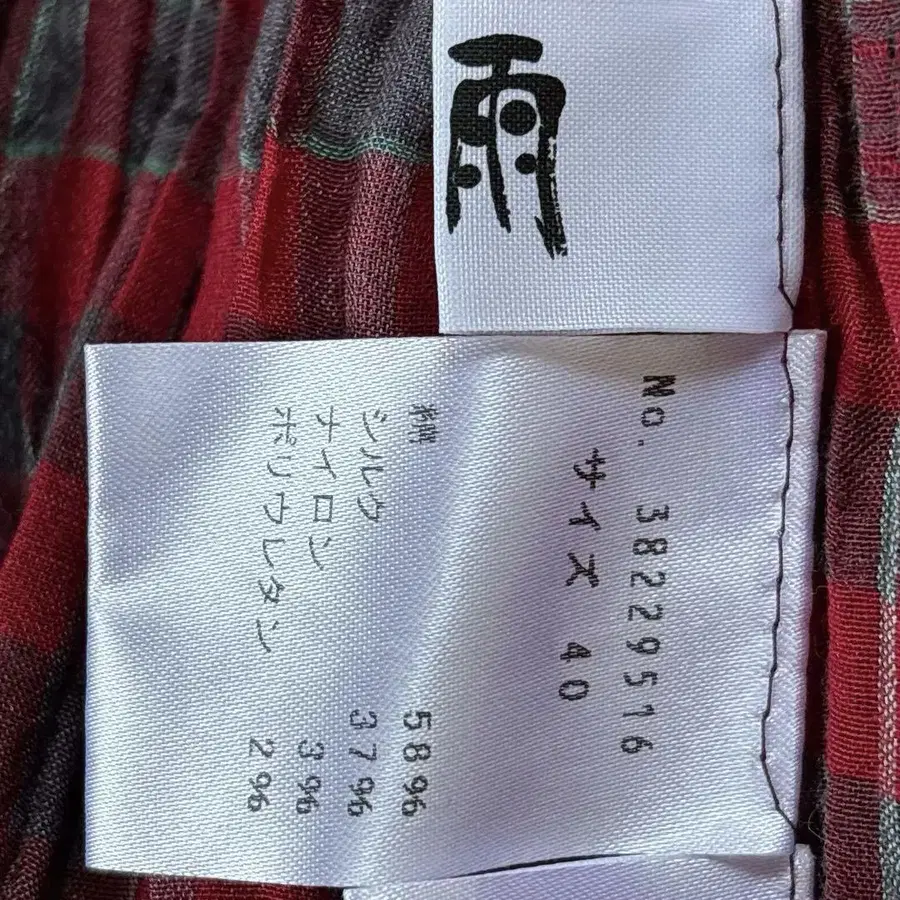 雨
No. 38229516
サイズ 40
綿 58%
シルク 37%
ナイロン 3%
ポリウレタン 2%